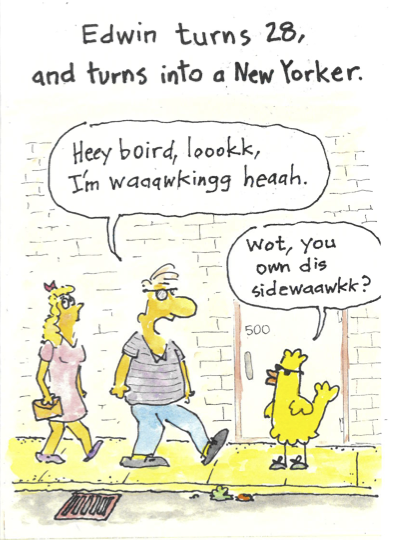 Edwin turns 28,
and turns into a New Yorker.
Heey boird, loookk,
I'm waaawkingg heaah.
Wot, you
own dis
sidewaawkk?
500